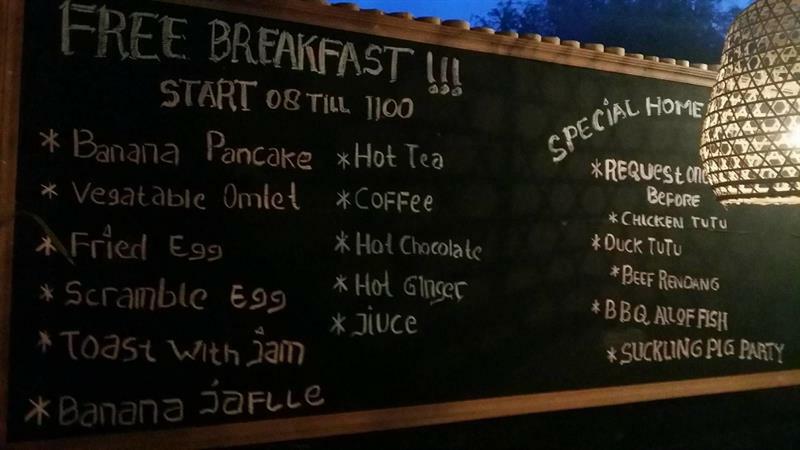 FREE BREAKFAST !!!
START 08 TILL 1100
* Banana Pancake
* Vegatable Omlet
* Fried Egg
* Scramble Egg
* Toast With jam
* Banana jaflle
* Hot Tea
* COFFee
* Hot Chocolate
* Hot Ginger
* Jiuce
SPECIAL HOME
* REQUEST
BEFORE
* CHICKEN TUTU
* DUCK TUTU
* BEEF RENDANG
* BBQ ALL OF FISH
* SUCKLING PIG PARTY